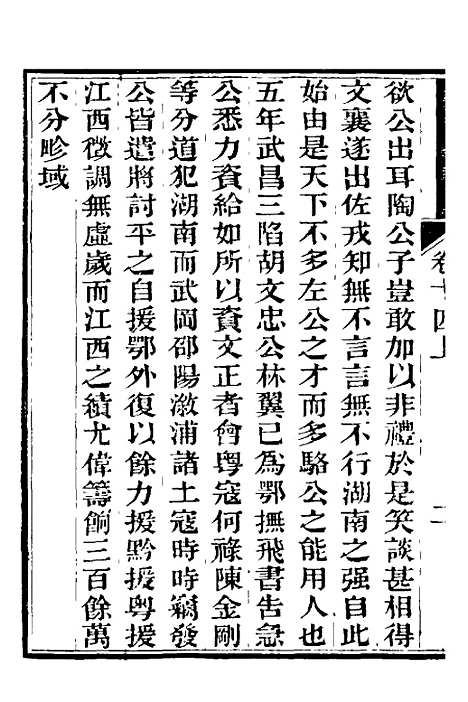 卷十四上
二
欲公出耳陶公子豈敢加以非禮於是笑談甚相得
文襄遂出佐戎知無不言言無不行湖南之强自此
始由是天下不多左公之才而多駱公之能用人也
五年武昌三陷胡文忠公林翼已爲鄂撫飛書告急
公悉力資給如所以資文正者會粤寇何祿陳金剛
等分道犯湖南而武岡邵陽溆浦諸土寇時時竊發
公皆遣將討平之自援鄂外復以餘力援黔援粤援
江西徵調無虛歲而江西之績尤偉籌餉三百餘萬
不分畛域